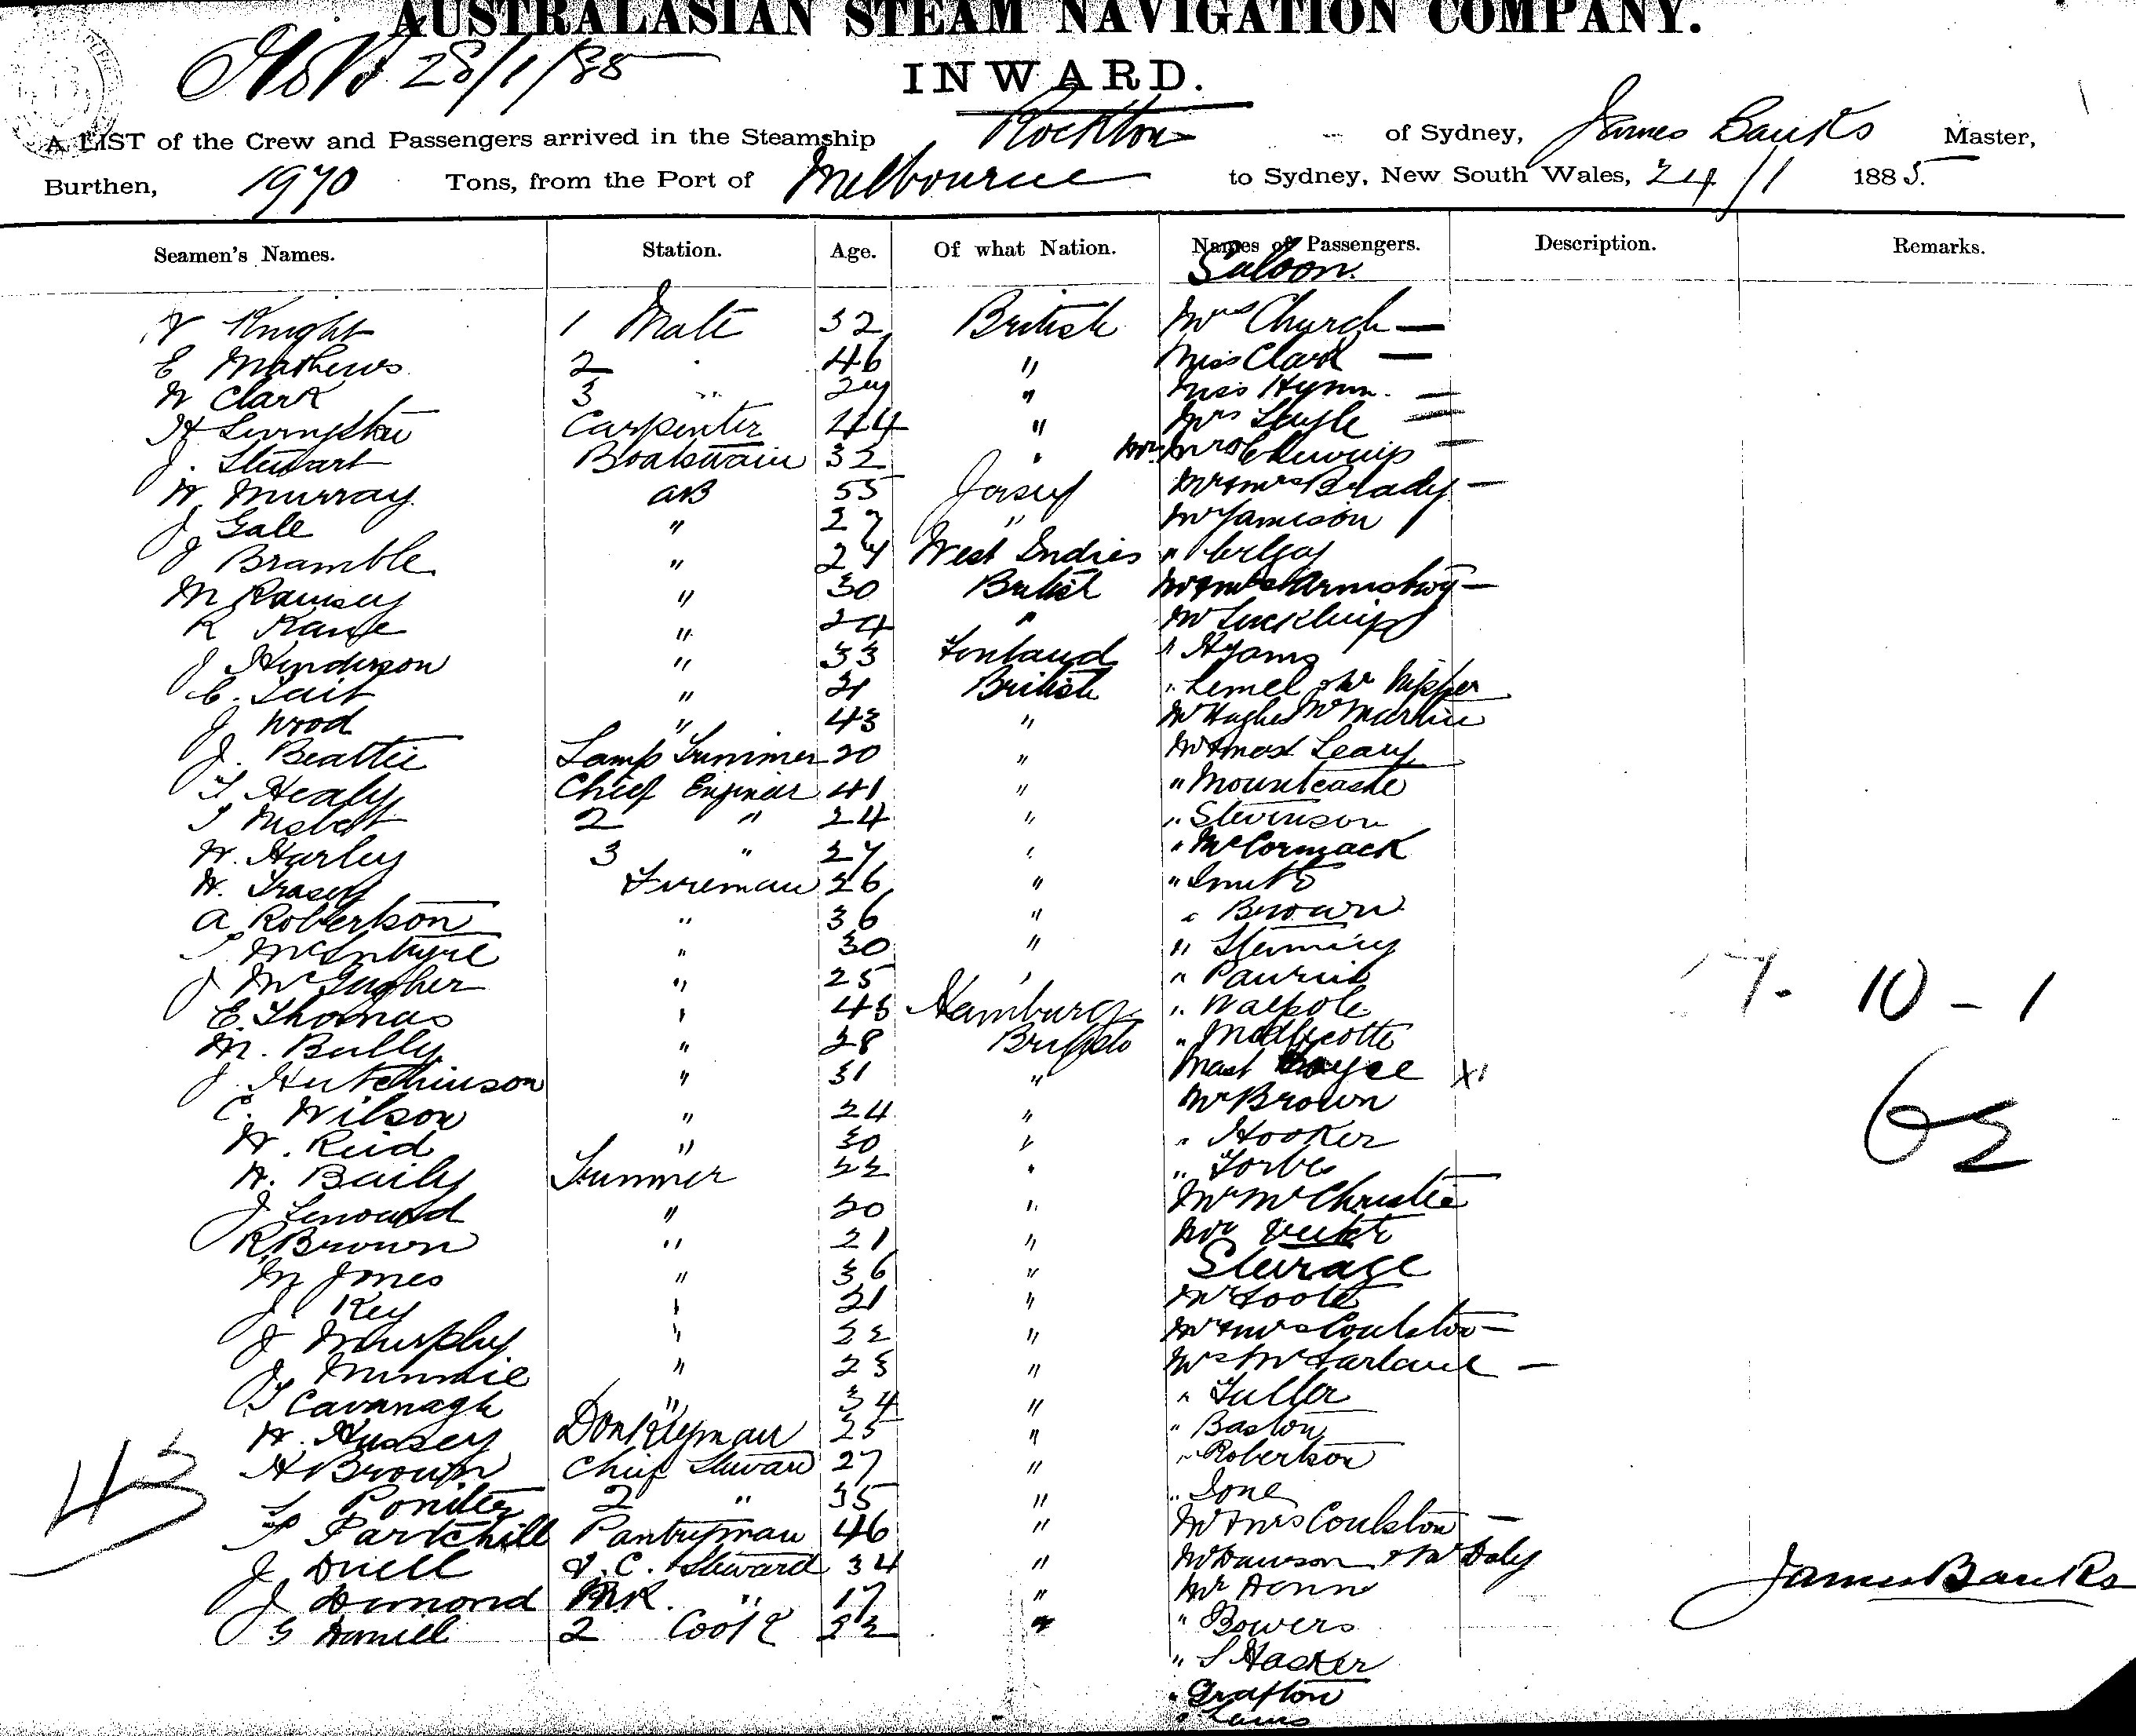 AUSTRALASIAN STEAM NAVIGATION COMPANY.
28/1/85
INWARD.
A LIST of the Crew and Passengers arrived in the Steamship Rockton of Sydney, James Banks Master,
Burthen, 1970 Tons, from the Port of Melbourne to Sydney, New South Wales, 24/1 1885.
Seamen's Names. Station. Age. Of what Nation. Names of Passengers. Description. Remarks.
Saloon.
Knight 1 Mate 32 British Mrs Church —
E Mathews 2 " 46 " Miss Clark —
W Clark 3 " " Miss Hymn. —
H Livingston Carpenter 44 " Mrs —
J. Stewart Boatswain 32 "
W. Murray AB 55 Jersey Mr & Mrs Brady —
J Gale " 27 " Mr Jameson
J Bramble " West Indies "
M Ramsey " 30 British Mr & Mrs Armstrong —
R Kane " 24 " Mr
J Henderson " 33 Finland " Hyams
C. Tait " 21 British " Lemel & Mr Nipper
J Wood " 43 " Mr Hughes Mr Martin
J. Beattie Lamp Trimmer 20 " Leary
T Healy Chief Engineer 41 " " Mountcastle
T Nisbet 2 " 24 " " Stevenson
W. Harley 3 " 27 " " McCormack
W. Fraser Fireman 26 " " Smith
A Robertson " 36 " " Brown
McIntyre " 30 " " Fleming
J " 25 "
E. Thomas " 43 Hamburg " Walpole
M. Bully " 28 British " Medlycotte
J. Hutchinson " 31 " Mast Boyce X1
C. Wilson " 24 " Mr Brown
W. Reid " 30 " " Hooker
W. Baily Trimmer 22 " " Forbes
J Lenoard " 20 " Mr McChristie
R Brown " 21 "
M Jones " 36 " Steerage
J. Key " 21 " Mr Foote
J Murphy " 22 " Mr & Mrs Coulston —
J Minnie " 23 " McFarlane —
T Cavanagh " 34 " " Fuller
W. Hussey Donkeyman 25 " " Baston
H Brown Chief Steward 27 " " Robertson
Poniter 2 " 35 " "
Parkhill Pantryman 46 " Mr & Mrs Coulston —
J Duell F.C. Steward 34 " Mr Dawson & Mr Daly
J Dimond M.R. " 17 " Mr Denn
G Daniell 2 Cook 22 " " Bowers
" S Hasker
" Grafton
" Lewis
43
10 - 1
62
James Banks